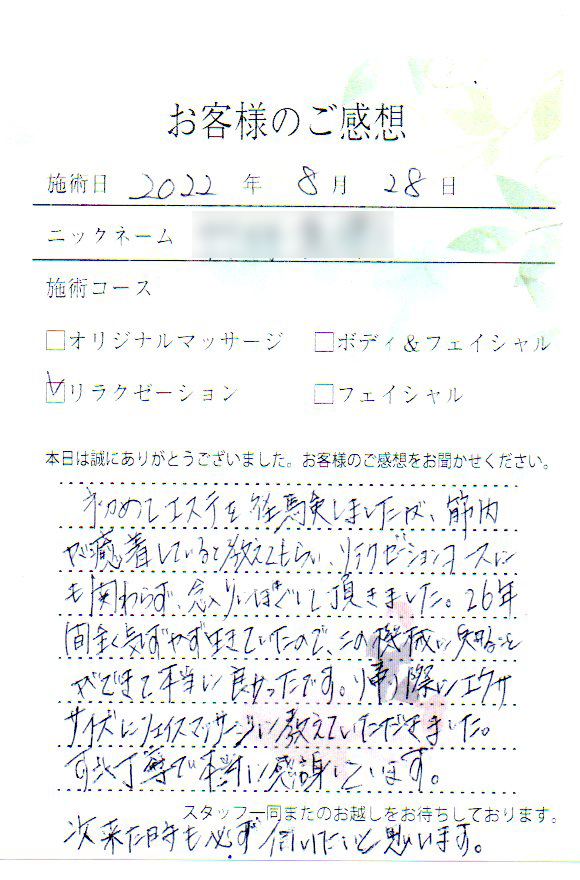 お客様のご感想
施術日 2022 年 8 月 28 日
ニックネーム
施術コース
□オリジナルマッサージ □ボディ&フェイシャル
☑リラクゼーション □フェイシャル
本日は誠にありがとうございました。お客様のご感想をお聞かせください。
初めてエステを経験しましたが、筋肉
が癒着していると教えてもらい、リラクゼーションコースに
も関わらず、念入りにほぐして頂きました。26年
間全く気づかず生きていたので、この機械に知ること
ができて本当に良かったです。帰り際にエクササイズに
フェイスマッサージに教えていただきました。
すごく丁寧で本当に感謝しています。
スタッフ一同またのお越しをお待ちしております。
次来た時も必ず伺いたいと思います。